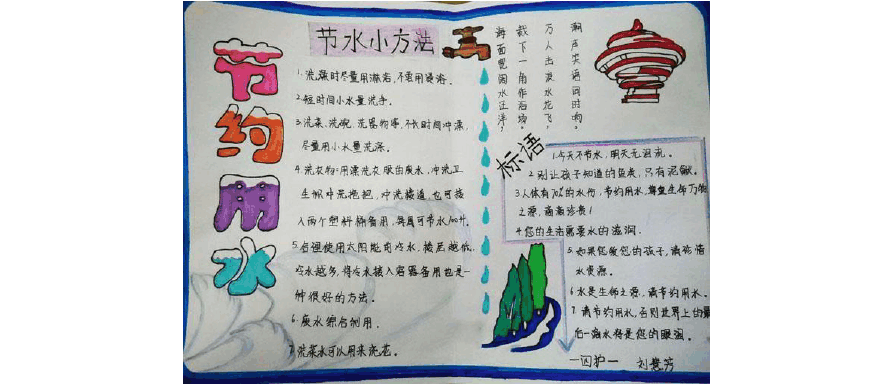 节约用水
节水小方法
1. 洗澡时尽量用淋浴，不要用浸浴。
2. 短时间小水量洗手。
3. 洗菜、洗碗、洗器物等，不长时间冲漂，
尽量用小水量洗涤。
4. 洗衣物：用漂洗衣服的废水，冲洗卫
生纸冲洗拖把，冲洗楼道也可接
入两个塑料桶备用，每周可节水100升。
5. 合理使用太阳能前冷水，楼层越低
冷水越多，将冷水接入容器备用也是一
种很好的方法。
6. 废水综合利用。
7. 洗菜水可以用来浇花。
潮声实语同时响，
万人击浪水花飞，
裁下一角作浴场，
海面宽阔水让洋，
标语
1. 今天不节水，明天无泪流。
2. 别让孩子知道的鱼类，只有泥鳅。
3. 人体有70%的水份，节约用水，尊重生命万物
之源，滴滴珍贵！
4. 您的生活需要水的滋润。
5. 如果您爱您的孩子，请珍惜
水资源。
6. 水是生命之源，请节约用水。
7. 请节约用水，否则世界上的最
后一滴水将是您的眼泪。
一四护一
刘慧芳